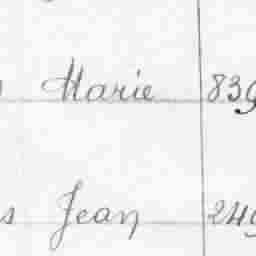 Marie 839
s Jean 249